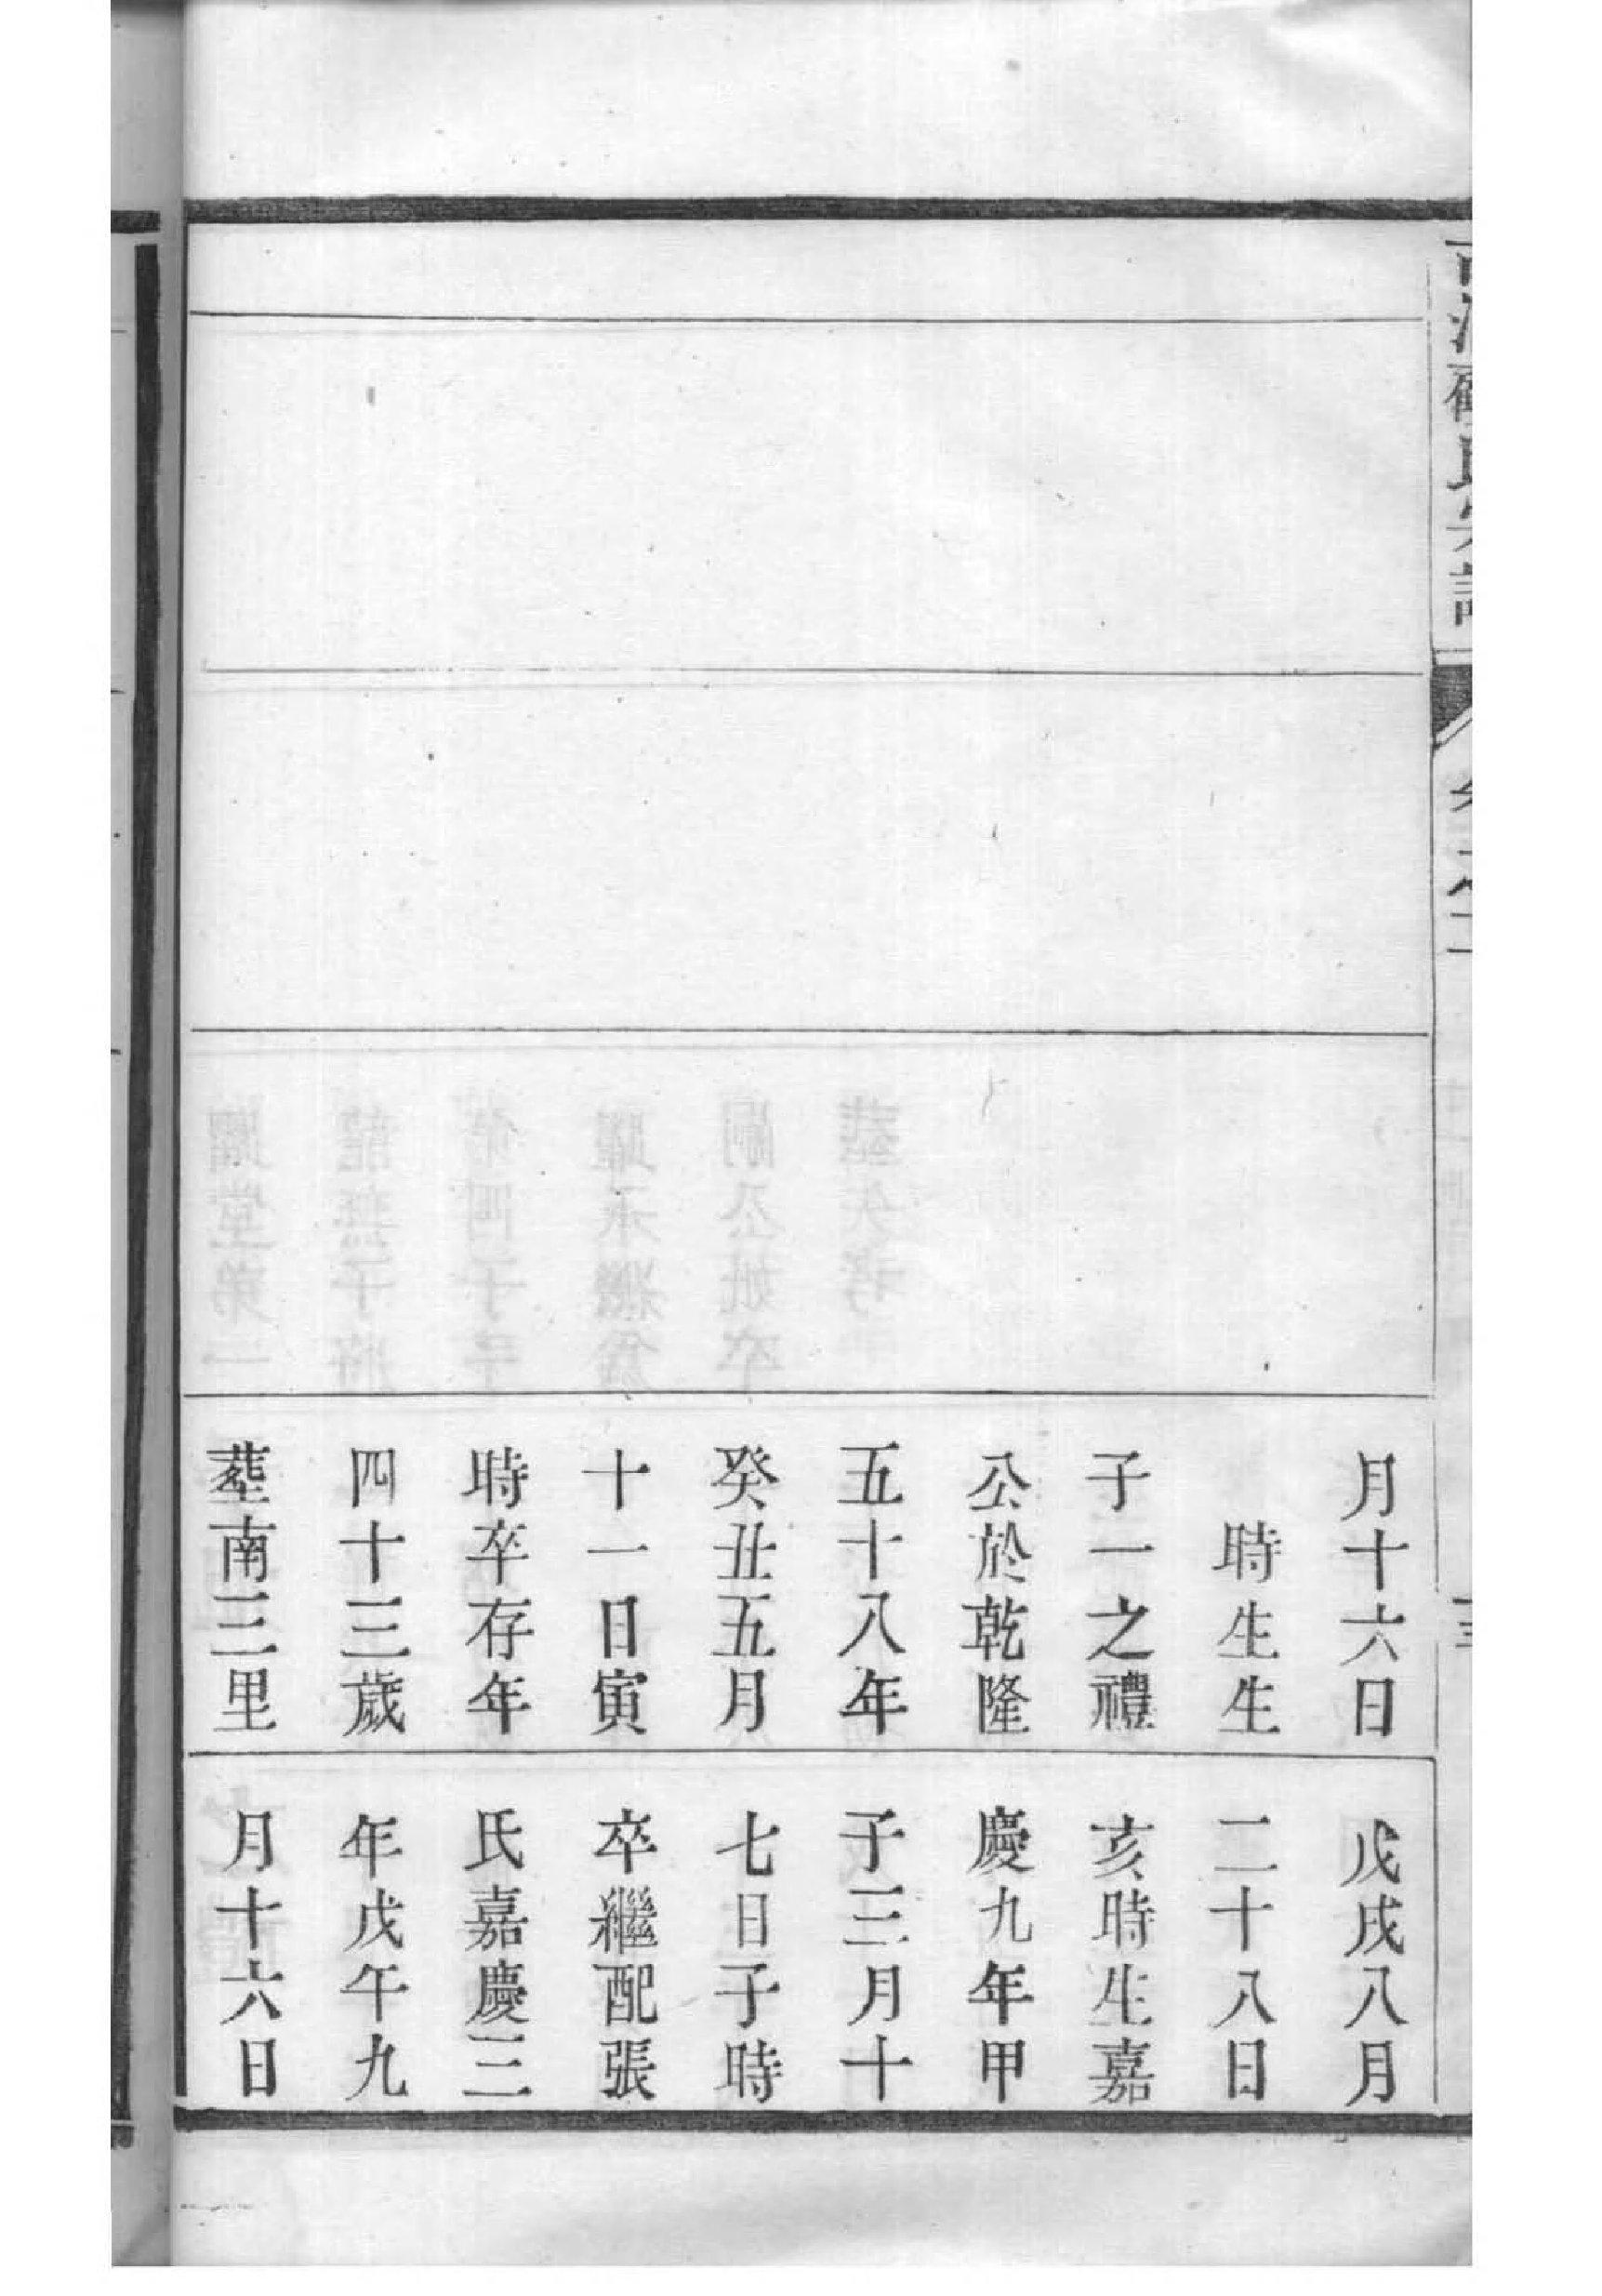 月十六日
時生生
子一之禮
公於乾隆
五十八年
癸丑五月
十一日寅
時卒存年
四十三歲
塟南三里
戊戌八月
二十八日
亥時生嘉
慶九年甲
子三月十
七日子時
卒繼配張
氏嘉慶三
年戊午九
月十六日